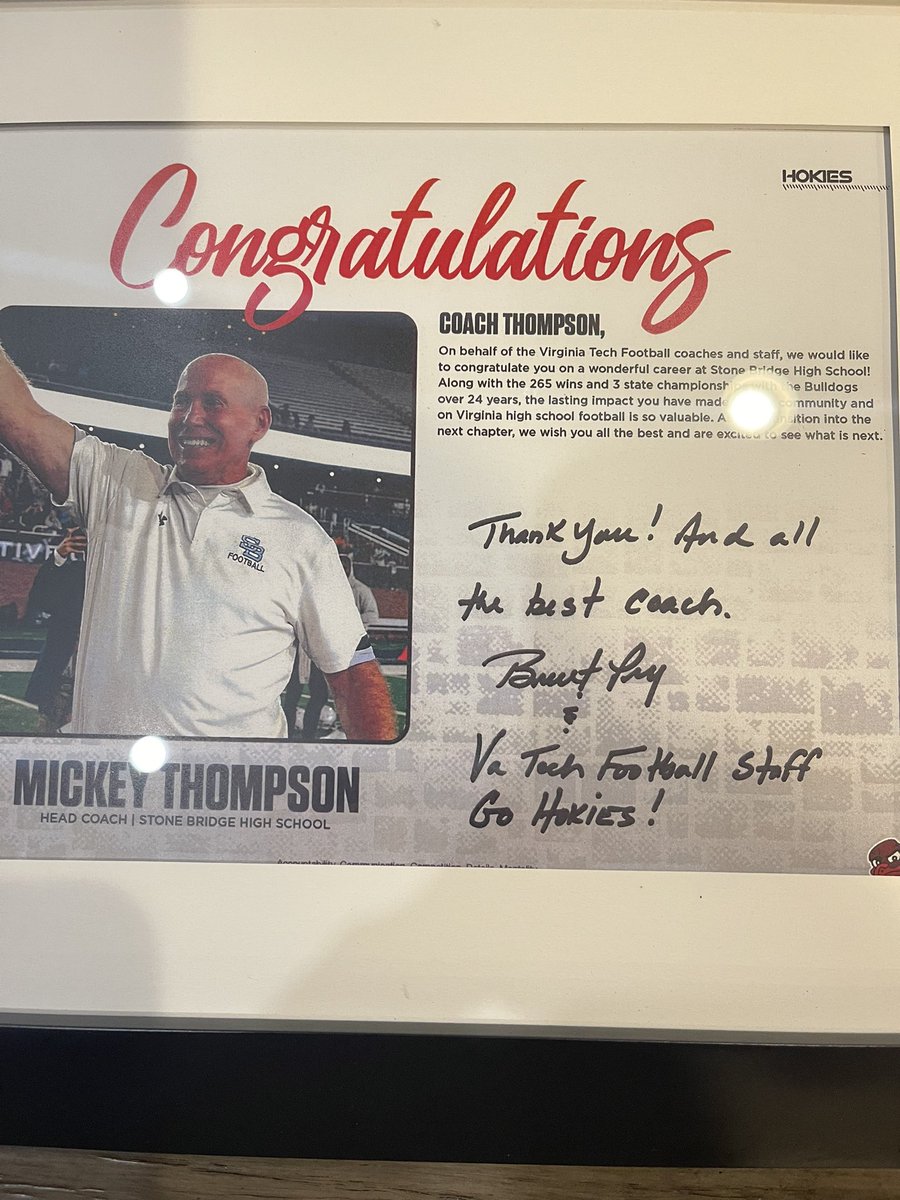 HOKIES
Congratulations
COACH THOMPSON,
On behalf of the Virginia Tech Football coaches and staff, we would like
to congratulate you on a wonderful career at Stone Bridge High School!
Along with the 265 wins and 3 state championships with the Bulldogs
over 24 years, the lasting impact you have made community and
on Virginia high school football is so valuable. into the
next chapter, we wish you all the best and are excited to see what is next.
SB
FOOTBALL
Thank You! And all
the best coach.
Brent Pry
&
Va Tech Football Staff
Go Hokies!
MICKEY THOMPSON
HEAD COACH | STONE BRIDGE HIGH SCHOOL
Accountability Communication Competition Details Mentality